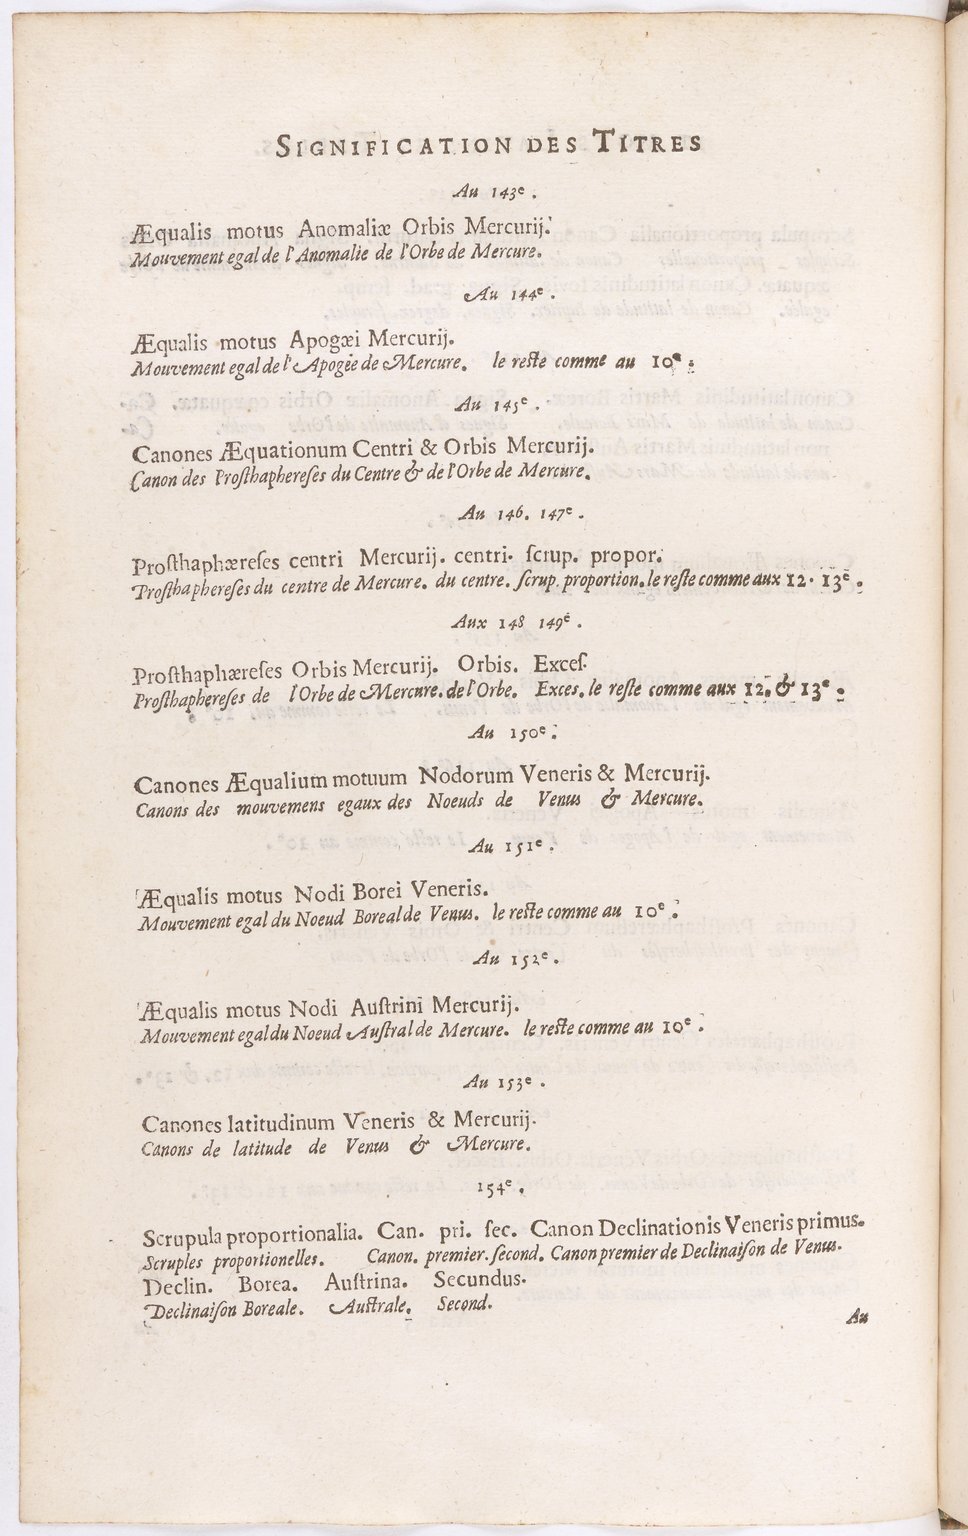 SIGNIFICATION DES TITRES
Au 143e.
Æqualis motus Anomaliæ Orbis Mercurij.
Mouvement egal de l'Anomalie de l'Orbe de Mercure.
Au 144e.
Æqualis motus Apogæi Mercurij.
Mouvement egal de l'Apogée de Mercure. le reſte comme au 10e.
Au 145e.
Canones Æquationum Centri & Orbis Mercurij.
Canon des Proſthaphereſes du Centre & de l'Orbe de Mercure.
Au 146. 147e.
Proſthaphæreſes centri Mercurij. centri. ſcrup. propor.
Proſthaphereſes du centre de Mercure. du centre. ſcrup. proportion. le reſte comme aux 12. 13e.
Aux 148 149e.
Proſthaphæreſes Orbis Mercurij. Orbis. Exceſ.
Proſthaphereſes de l'Orbe de Mercure. de l'Orbe. Exces. le reſte comme aux 12. & 13e.
Au 150e.
Canones Æqualium motuum Nodorum Veneris & Mercurij.
Canons des mouvemens egaux des Noeuds de Venus & Mercure.
Au 151e.
Æqualis motus Nodi Borei Veneris.
Mouvement egal du Noeud Boreal de Venus. le reſte comme au 10e.
Au 152e.
Æqualis motus Nodi Auſtrini Mercurij.
Mouvement egal du Noeud Auſtral de Mercure. le reſte comme au 10e.
Au 153e.
Canones latitudinum Veneris & Mercurij.
Canons de latitude de Venus & Mercure.
154e.
Scrupula proportionalia. Can. pri. ſec. Canon Declinationis Veneris primus.
Scruples proportionelles. Canon. premier. ſecond. Canon premier de Declinaiſon de Venus.
Declin. Borea. Auſtrina. Secundus.
Declinaiſon Boreale. Auſtrale. Second.
Au